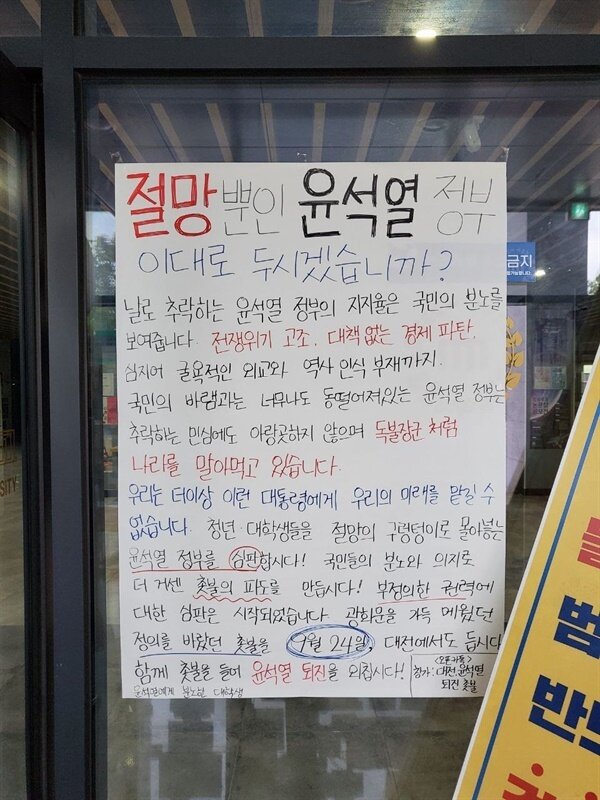 절망뿐인 윤석열 정부
이대로 두시겠습니까?
날로 추락하는 윤석열 정부의 지지율은 국민의 분노를
보여줍니다. 전쟁위기 고조, 대책 없는 경제 파탄,
심지어 굴욕적인 외교와 역사 인식 부재까지.
국민의 바램과는 너무나도 동떨어져있는 윤석열 정부는
추락하는 민심에도 아랑곳하지 않으며 독불장군처럼
나라를 말아먹고 있습니다.
우리는 더이상 이런 대통령에게 우리의 미래를 맡길 수
없습니다. 청년·대학생들을 절망의 구렁텅이로 몰아붙는
윤석열 정부를 심판합시다! 국민들의 분노와 의지로
더 거센 촛불의 파도를 만듭시다! 부정의한 권력에
대한 심판은 시작되었습니다. 광화문을 가득 메웠던
정의를 바랐던 촛불을 9월 24일, 대전에서도 듭시다
함께 촛불을 들어 윤석열 퇴진을 외칩시다!
<오픈카톡>
참가: 대전 윤석열
퇴진 촛불
윤석열에게 분노한 대학생
금지
SITY
범
반